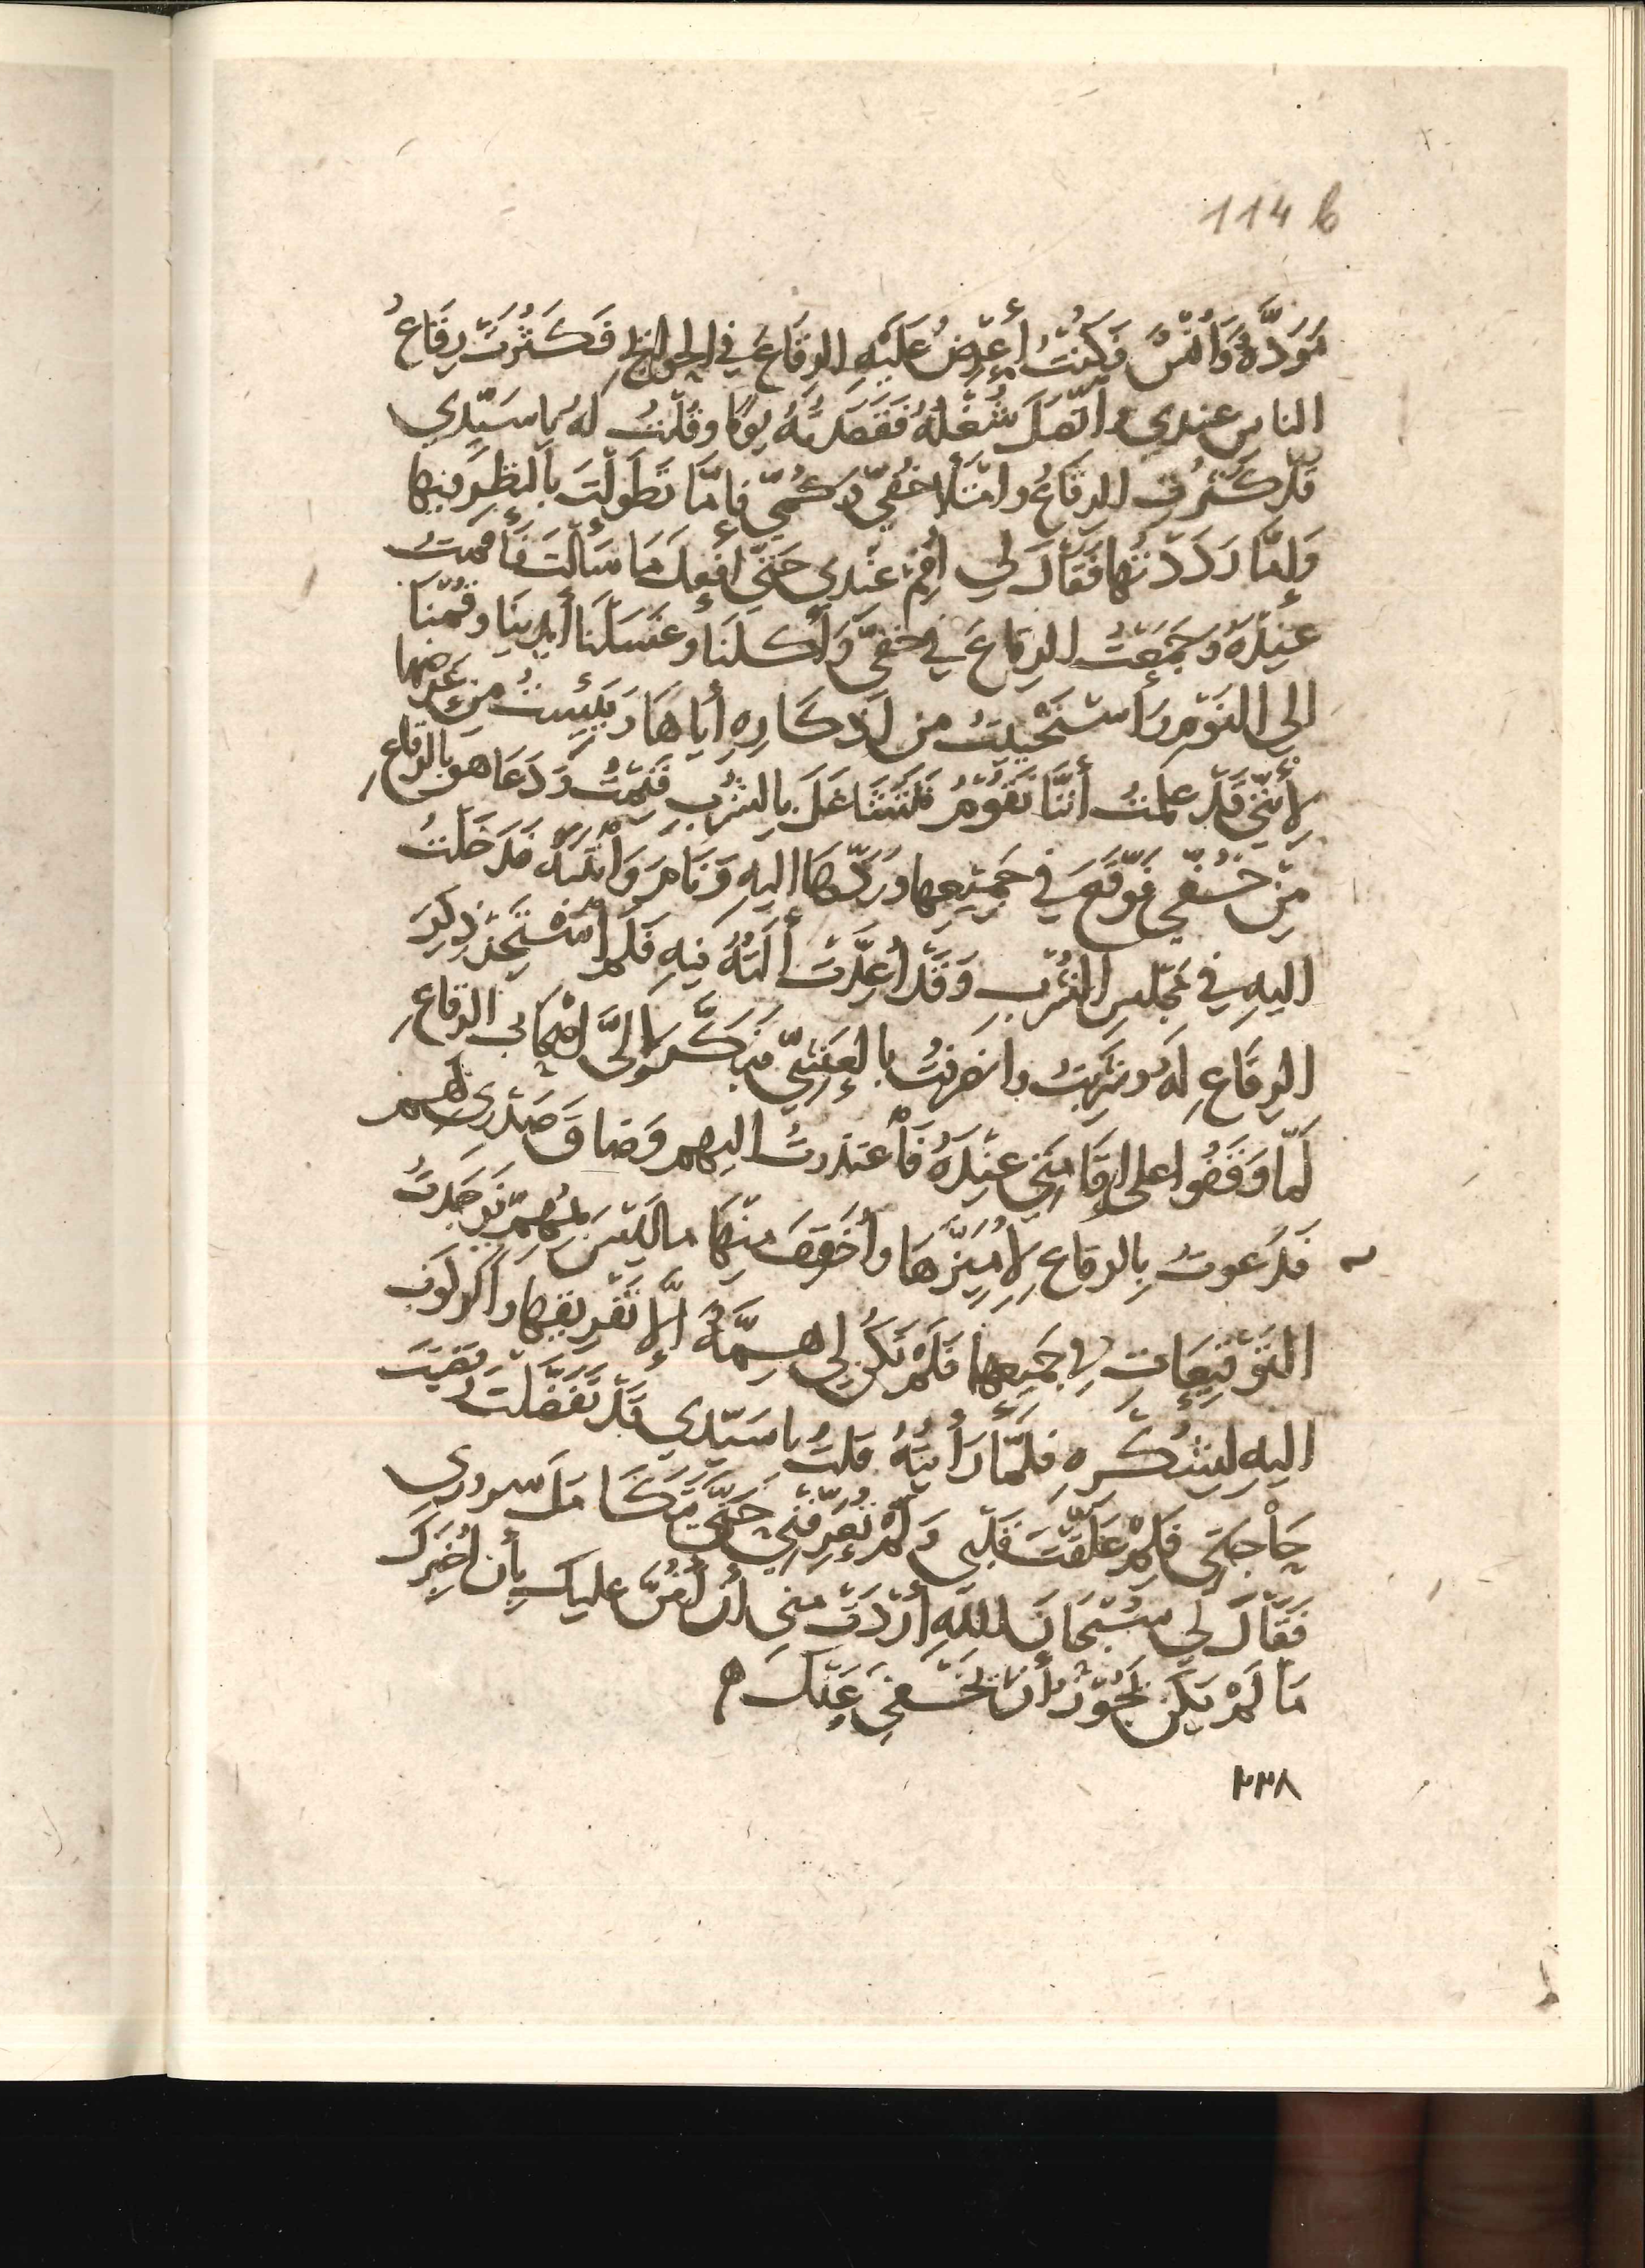 114 b
مَوَدَّةٌ وَأُنْسٌ فكُنْتُ أَعْرِضُ عَلَيْهِ الرِقَاعَ في الحوائج فَكَثُرَتْ رِقَاعُ
الناس عندي واتّصَلَ شُغْلُهُ فَقَصَدتُهُ يومًا وقُلْتُ لهُ يا سَيّدِي
قَدْ كَثُرَتْ الرِقَاعُ وامْتَلأَ خُفّي وكُمّي فإمّا تَطَوَّلْتَ بالنظرِ فيها
وَإمَّا رَدَدْتُها فَقَالَ لي أَقِمْ عندي حَتَّى أَفْعلَ مَا سَأَلْتَ فَأَقَمتُ
عِنْدَهُ وجَمَعْتُ الرِقاعَ في خُفّي وَأَكلنَا وغَسَلْنَا أَيدِينَا وقُمْنَا
إلى النَوْمِ وَاسْتَحْيَيْتُ من اذْكَارِهِ أيَاهَا ويَئِسْتُ مِنْ عَرْضِها
لأَنّي قَدْ عَلِمْتُ أَنَّنَا نَقُوْمُ فَنَتَشَاغَلَ بالشُرْبِ فَنِمْتُ وَدَعَا هو بالرِقاعِ
مِنْ خُفّي فوَقّعَ في جَمِيْعِها ورَدَّهَا اليهِ وَنَامَ وَانْتَبَهَ فدَخَلْتُ
اليهِ في مَجْلسِ الشُرْبِ وَقَدْ أُعِدَّتْ أَلَتُهُ فيهِ فَلَمْ أَسْتَجِزْ ذِكْرَ
الرِقَاعِ لَهُ وشَرِبْتُ وانصَرَفْتُ بالعَشِيّ فبَكَّرَ إلَيَّ أصْحَابُ الرِقاعِ
لَمّا وَقَفُوا على إِقَامَتي عِنْدَهُ فَأعْتذرتُ اليهم وَضَاقَ صَدْري لهم
فَدَعوتُ بِالرِقاعِ لأُمَيّزَهَا وأُخَفِفَ مِنْهَا ما لَيْسَ بِمُهِمّ فوَجَدتُ
التَوْقِيْعَاتِ في جَميعِها فَلَمْ تكُنْ لي هِمَّةٌ إلّا تَفْرِيقِها والركوب
اليهِ لِشُكْرِهِ فلَمّا رَأيتُهُ قلتُ يا سَيّدي قَدْ تَفَضَّلْتَ وقَضَيْتَ
حَاْجَتي فَلِمْ عَلَّقْتَ قَلْبي وَلَمْ تُعَرّفْنِي حَتَّى يتَكَامَلَ سروري
فَقَالَ لي سُبْحَانَ اللهِ أَرَدْتَ مني أن أَمُنَّ عليك بأن أُخْبِرَكَ
مَا لَمْ يَكنْ يَجُوْزُ أنْ يَخْفَى عَنْكَ
٢٣٨